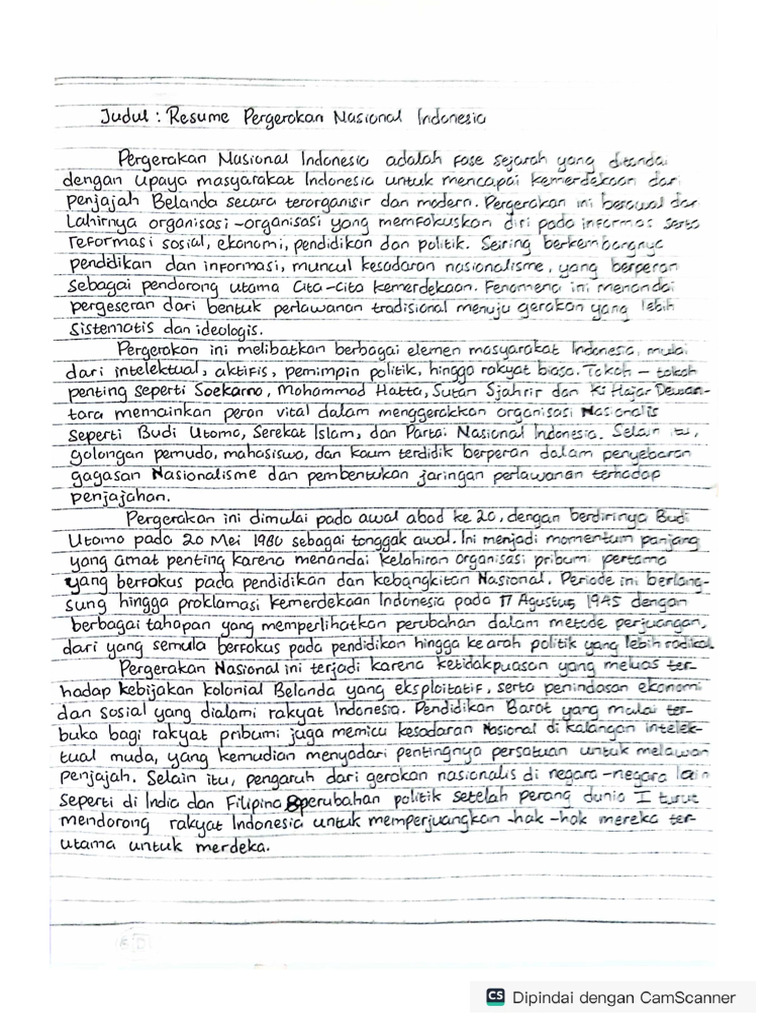 Judul : Resume Pergerakan Nasional Indonesia
Pergerakan Nasional Indonesia adalah fase sejarah yang ditandai
dengan upaya masyarakat Indonesia untuk mencapai kemerdekaan dari
penjajah Belanda secara terorganisir dan modern. Pergerakan ini berawal dar
Lahirnya organisasi-organisasi yang memfokuskan diri pada informasi serta
reformasi sosial, ekonomi, pendidikan dan politik. Seiring berkembangnya
pendidikan dan informasi, muncul kesadaran nasionalisme, yang berperan
sebagai pendorong utama cita-cita kemerdekaan. Fenomena ini menandai
pergeseran dari bentuk perlawanan tradisional menuju gerakan yang lebih
sistematis dan ideologis.
Pergerakan ini melibatkan berbagai elemen masyarakat Indonesia, mulai
dari intelektual, aktifis, pemimpin politik, hingga rakyat biasa. Tokoh - tokoh
penting seperti Soekarno, Mohammad Hatta, Sutan Sjahrir dan Ki Hajar Dewan-
tara memainkan peran vital dalam menggerakkan organisasi Nasionalis
seperti Budi Utomo, Serekat Islam, dan Partai Nasional Indonesia. Selain itu,
golongan pemuda, mahasiswa, dan kaum terdidik berperan dalam penyebaran
gagasan Nasionalisme dan pembentukan jaringan perlawanan terhadap
penjajahan.
Pergerakan ini dimulai pada awal abad ke 20, dengan berdirinya Budi
Utomo pada 20 Mei 1980 sebagai tonggak awal. Ini menjadi momentum panjang
yang amat penting karena menandai kelahiran organisasi pribumi pertama
yang berfokus pada pendidikan dan kebangkitan Nasional. Periode ini berlang-
sung hingga proklamasi kemerdekaan Indonesia pada 17 Agustus 1945 dengan
berbagai tahapan yang memperlihatkan perubahan dalam metode perjuangan,
dari yang semula berfokus pada pendidikan hingga ke arah politik yang lebih radikal.
Pergerakan Nasional ini terjadi karena ketidakpuasan yang meluas ter-
hadap kebijakan kolonial Belanda yang eksploitatif, serta penindasan ekonomi
dan sosial yang dialami rakyat Indonesia. Pendidikan Barat yang mulai ter-
buka bagi rakyat pribumi juga memicu kesadaran Nasional di kalangan intelek-
tual muda, yang kemudian menyadari pentingnya persatuan untuk melawan
penjajah. Selain itu, pengaruh dari gerakan nasionalis di negara-negara lain
seperti di India dan Filipina & perubahan politik setelah perang dunia I turut
mendorong rakyat Indonesia untuk memperjuangkan -hak -hak mereka ter-
utama untuk merdeka.
CS Dipindai dengan CamScanner